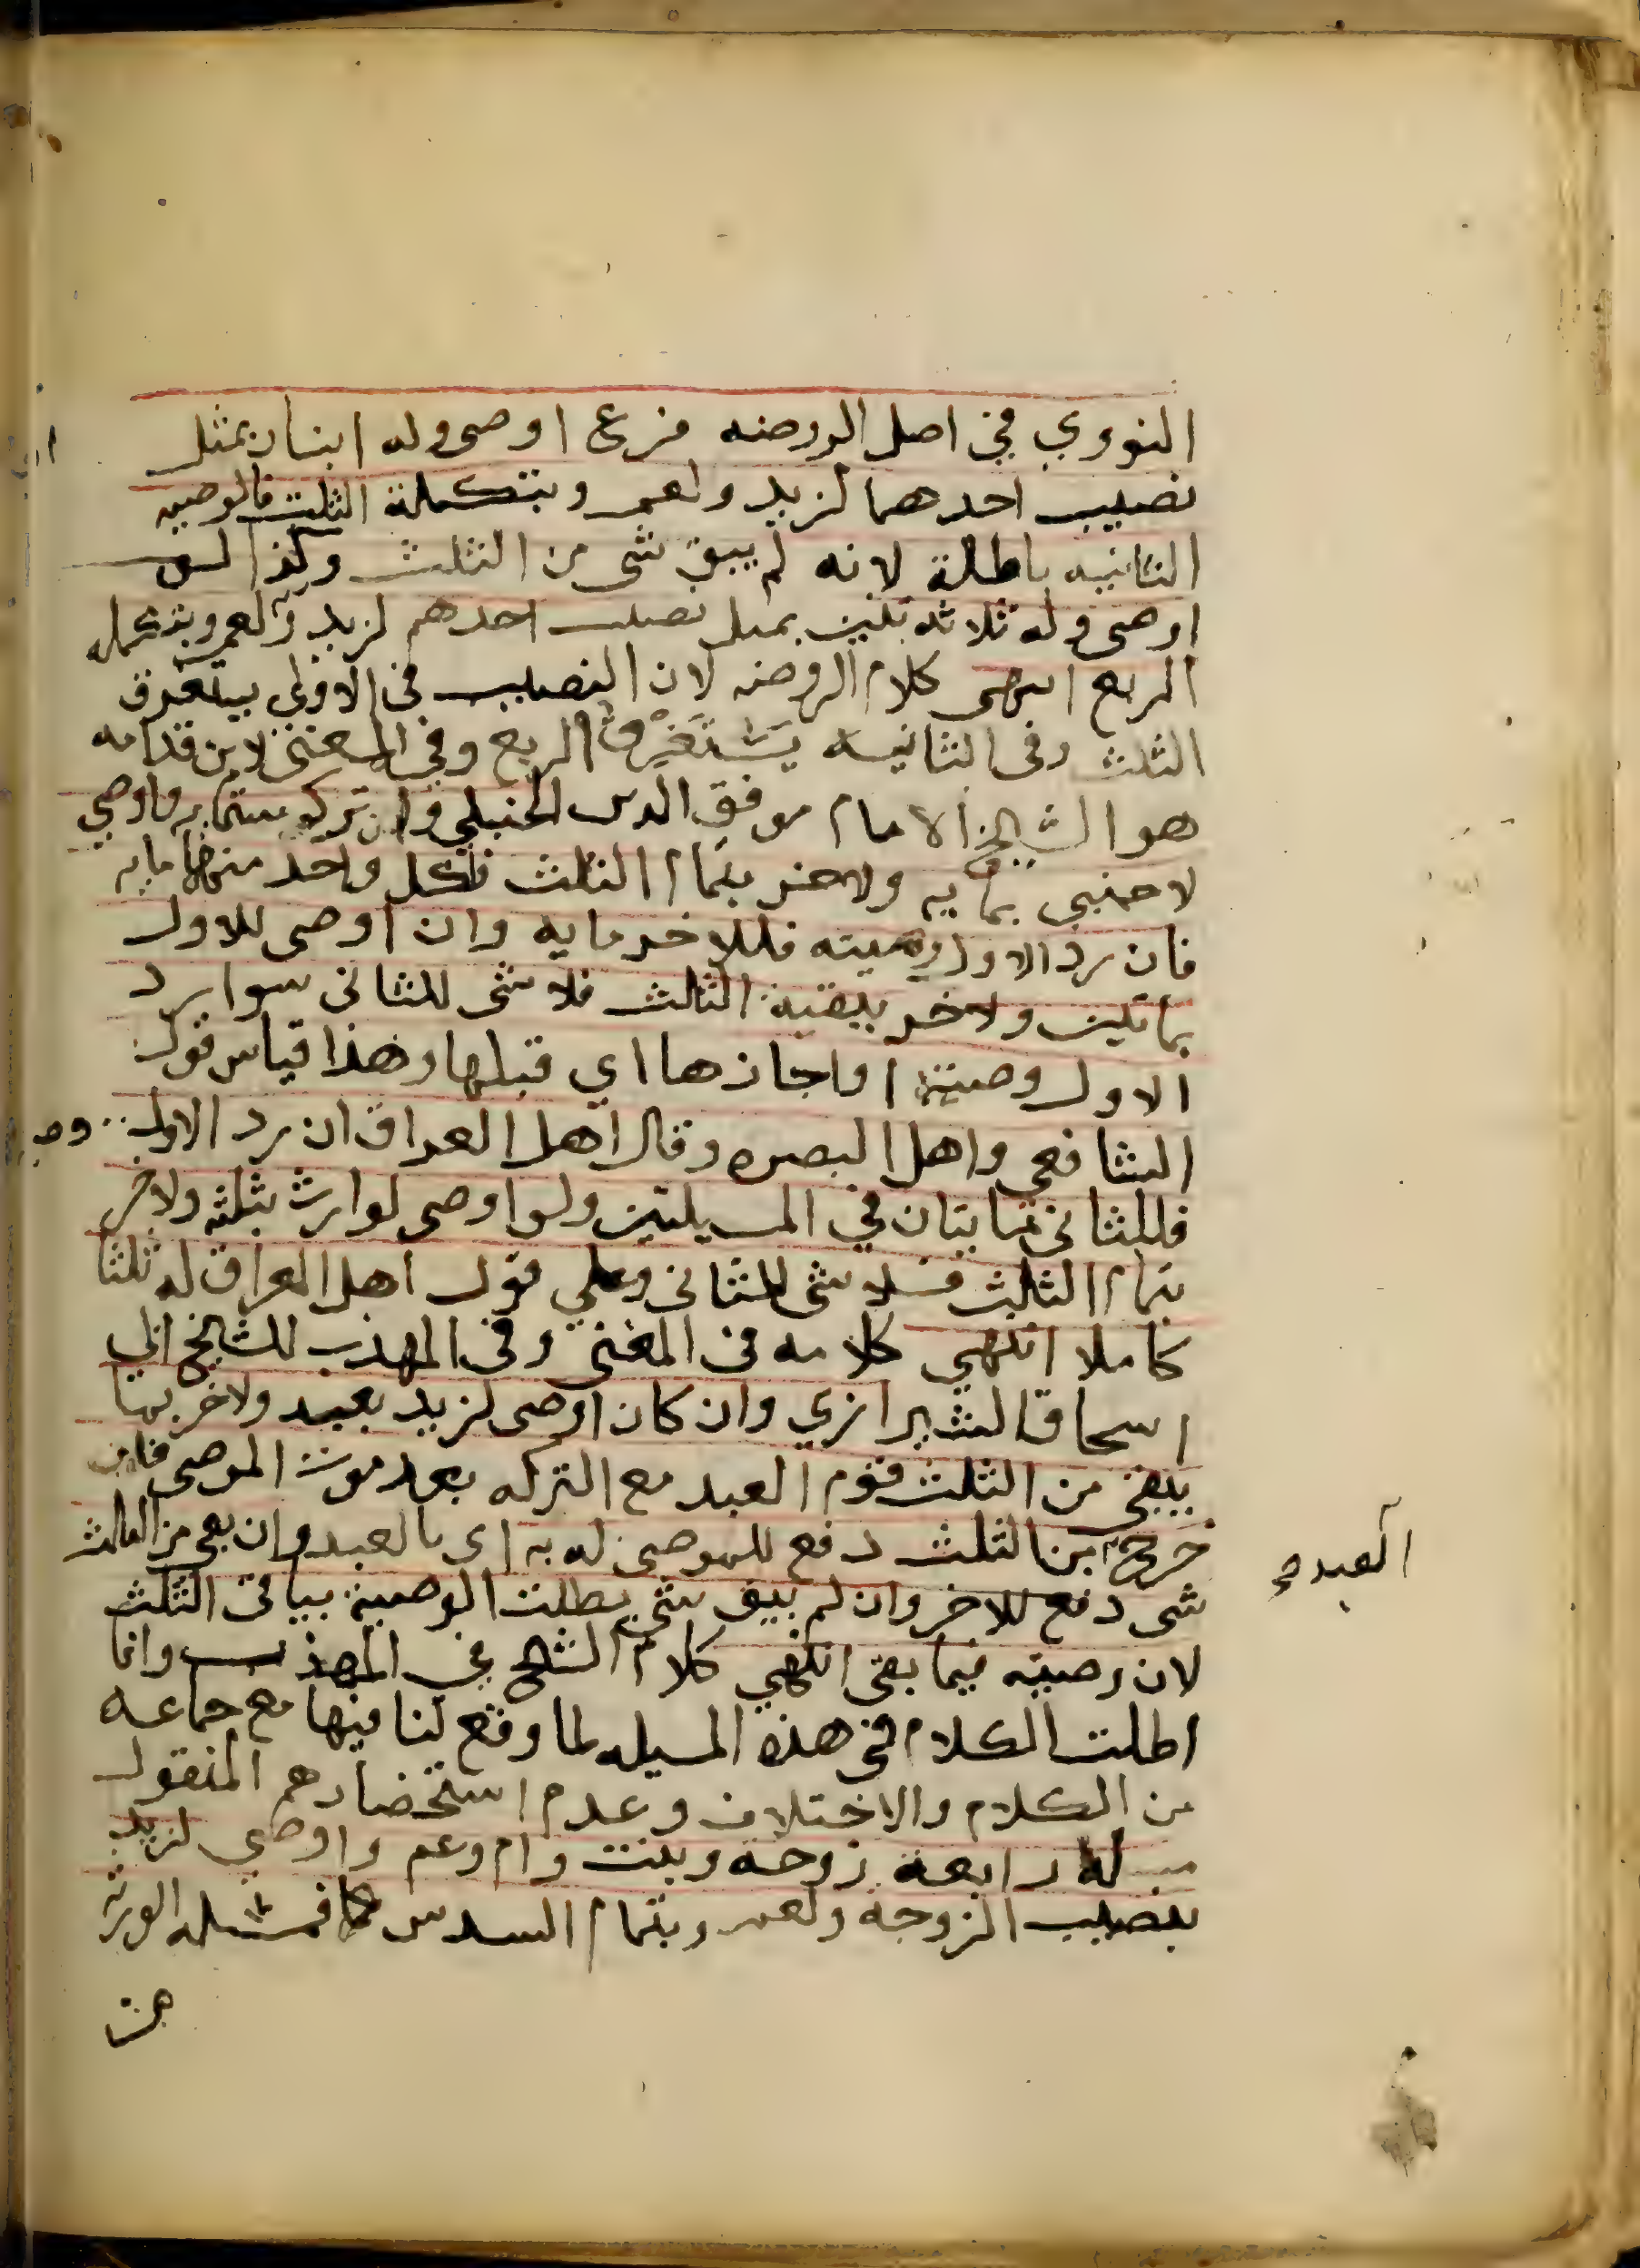 النووي في اصل الروضه فرع اوصى وله ابنان بمثل
نصيب احدهما لزيد ولعمرو بتكملة الثلث فالوصيه
الثانيه باطلة لانه لم يبق شى من الثلث وكذا لو
اوصى وله ثلاثه بنين بمثل نصيب احدهم لزيد ولعمرو بتكمله
الربع انتهى كلام الروضه لان النصيب في الاولى يستغرق
الثلث وفى الثانيه يَسْتَغْرِقُ الربع وفي المغنى لابن قدامه
هو الشيخ الامام موفق الدين الحنبلي وان ترك ستمايه فاوصي
لاجنبي بمايه ولاخر بتمام الثلث فلكل واحد منهما مايه
فان رد الاول وصيته فللاخر مايه وان اوصى للاول
بمايتين ولاخر ببقية الثلث فلا شى للثانى سوا رد
الاول وصيته او اجازها اي قبلها وهذا قياس قول
الشافعي واهل البصره وقال اهل العراق ان رد الاول
فللثانى مايتان في المسيلتين ولو اوصى لوارث بثلثه ولاخر
بتمام الثلث فلا شى للثانى وعلي قول اهل العراق له ثلثا
كاملا انتهي كلامه فى المغنى وفى المهذب للشيخ ابي
اسحاق الشيرازي وان كان اوصى لزيد بعبد ولاخر بما
يبقى من الثلث قوم العبد مع التركه بعد موت الموصى فان
خرج من الثلث دفع للموصى له به اى بالعبد وان بقى من الثلث
شى دفع للاخر وان لم يبق شى بطلت الوصية بباقى الثلث
لان وصيته فيما بقى انتهي كلام الشيخ في المهذب وانما
اطلت الكلام فى هذه المسيله لما وقع لنا فيها مع جماعه
من الكلام والاختلاف وعدم استحضارهم المنقول
رابعة زوجة وبنت وام وعم واوصى لزيد
بنصيب الزوجة ولعمرو بتمام السدس الورثه
العبد